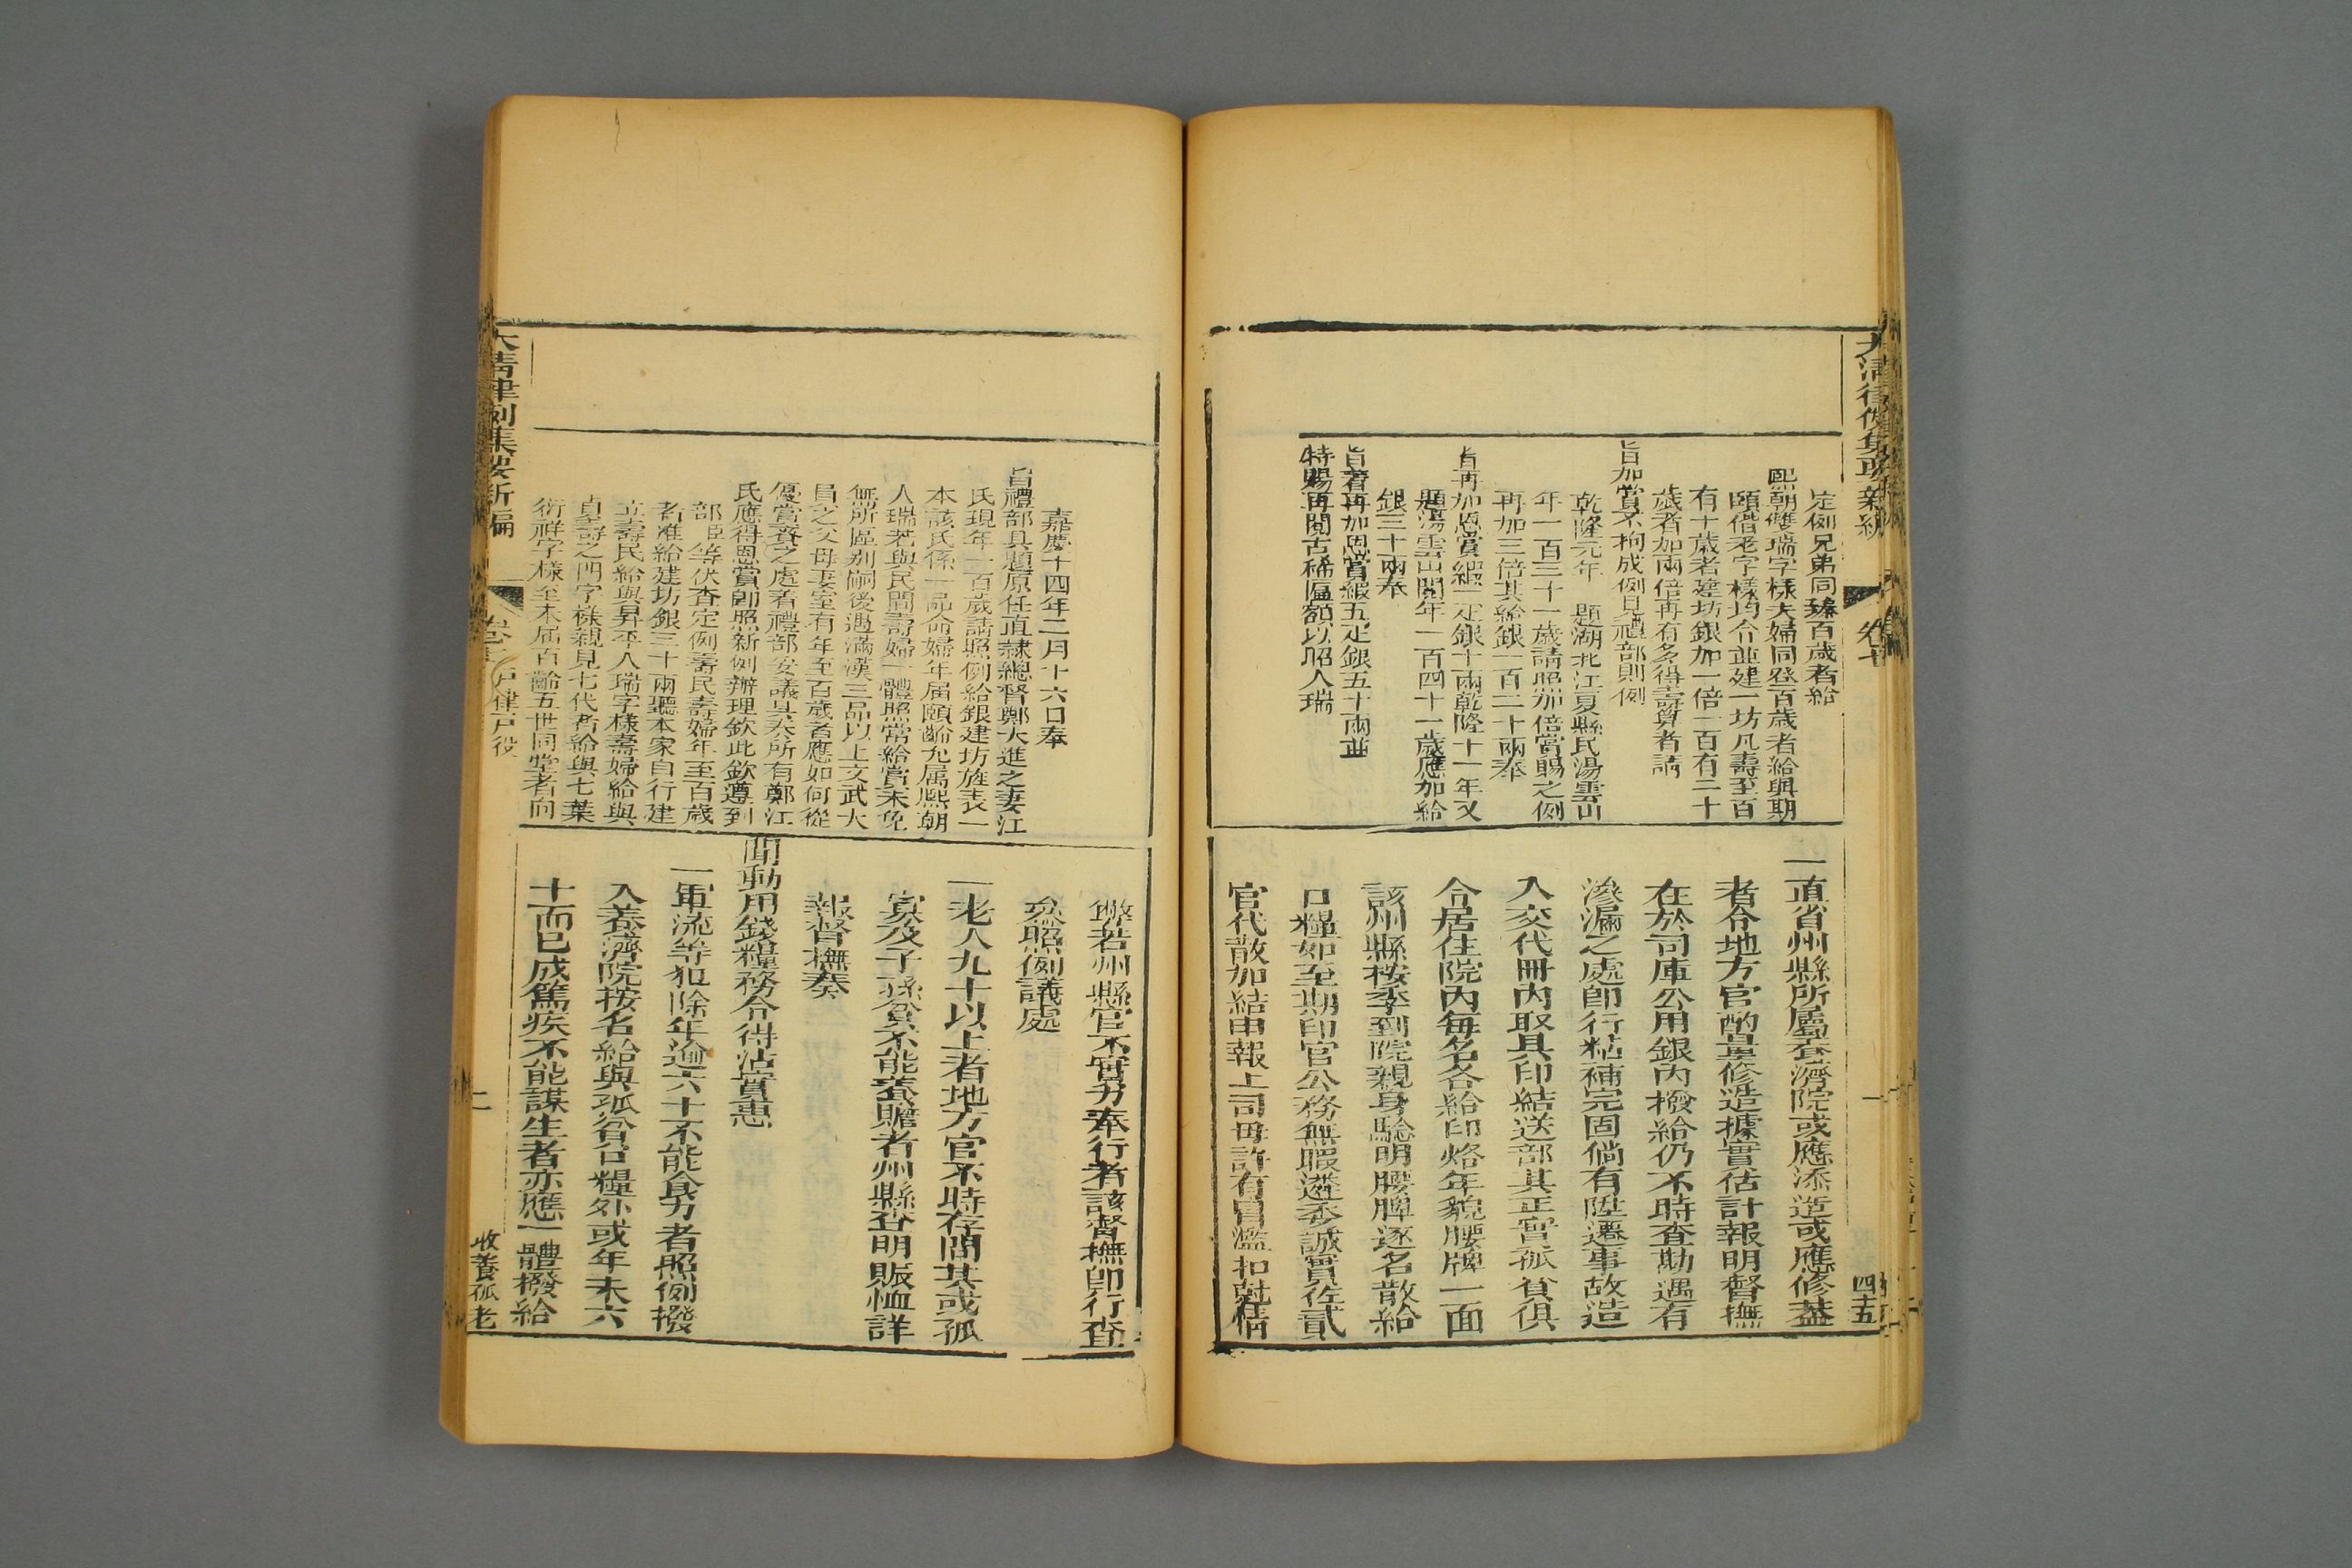 大清律例集要新編
卷十
四五
定例兄弟同臻百歲者給
熙朝雙瑞字樣夫婦同登百歲者給與期
頤偕老字樣均令並建一坊凡壽至百
有十歲者建坊銀加一倍一百有二十
歲者加兩倍再有多得壽算者請
旨加賞不拘成例見禮部則例
乾隆元年 題湖北江夏縣民湯雲山
年一百三十一歲請照加倍賞賜之例
再加三倍共給銀一百二十兩奉
旨再加恩賞緞一疋銀十兩乾隆十一年又
題湯雲山閱年一百四十一歲應加給
銀三十兩奉
旨著再加恩賞緞五疋銀五十兩並
特賜再閱古稀匾額以昭人瑞
一直省州縣所屬養濟院或應添造或應修葢
者令地方官酌量修造據實估計報明督撫
在於司庫公用銀內撥給仍不時查勘遇有
滲漏之處即行粘補完固倘有陞遷事故造
入交代冊內取具印結送部其正實孤貧俱
令居住院內每名各給印烙年貌腰牌一面
該州縣按季到院親身驗明腰牌逐名散給
口糧如至期印官公務無暇遴委誠實佐貳
官代散加結申報上司毋許有冒濫扣尅情
嘉慶十四年二月十六日奉
旨禮部具題原任直隸總督鄭大進之妻江
氏現年一百歲請照例給銀建坊旌表一
本該氏係一品命婦年届頤齡允属熙朝
人瑞若與民間壽婦一體照常給賞未免
無所區别嗣後遇滿漢三品以上文武大
員之父母妻室有年至百歲者應如何從
優賞賚之處着禮部妥議具奏所有鄭江
氏應得恩賞即照新例辦理欽此欽遵到
部臣等伏查定例壽民壽婦年至百歲
者准給建坊銀三十兩聽本家自行建
立壽民給與昇平人瑞字樣壽婦給與
貞壽之門字樣親見七代者給與七葉
衍祥字樣至未届百齡五世同堂者向
弊若州縣官不實力奉行者該督撫即行查
叅照例議處
一老人九十以上者地方官不時存問其或孤
寡及子孫貧不能養贍者州縣查明賑恤詳
報督撫奏
聞動用錢糧務令得沾實惠
一軍流等犯除年逾六十不能食力者照例撥
入養濟院按名給與孤貧口糧外或年未六
十而已成篤疾不能謀生者亦應一體撥給
大清律例集要新編
卷十
戶律戶役
二
收養孤老